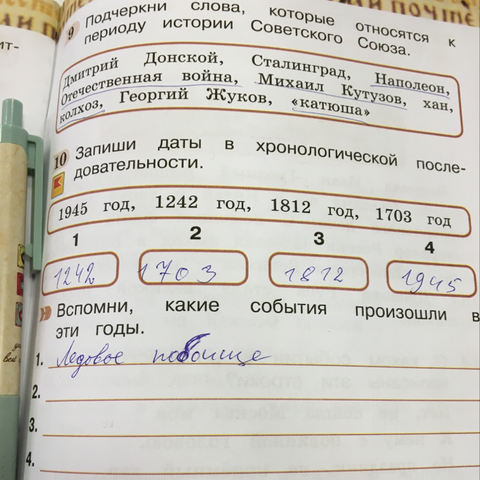 9 Подчеркни слова, которые относятся к
периоду истории Советского Союза.
Дмитрий Донской, Сталинград, Наполеон,
Отечественная война, Михаил Кутузов, хан,
колхоз, Георгий Жуков, «катюша»
10 Запиши даты в хронологической после-
довательности.
1945 год, 1242 год, 1812 год, 1703 год
1 2 3 4
1242 1703 1812 1945
Вспомни, какие события произошли в
эти годы.
1. Ледовое побоище
2.
3.
4.